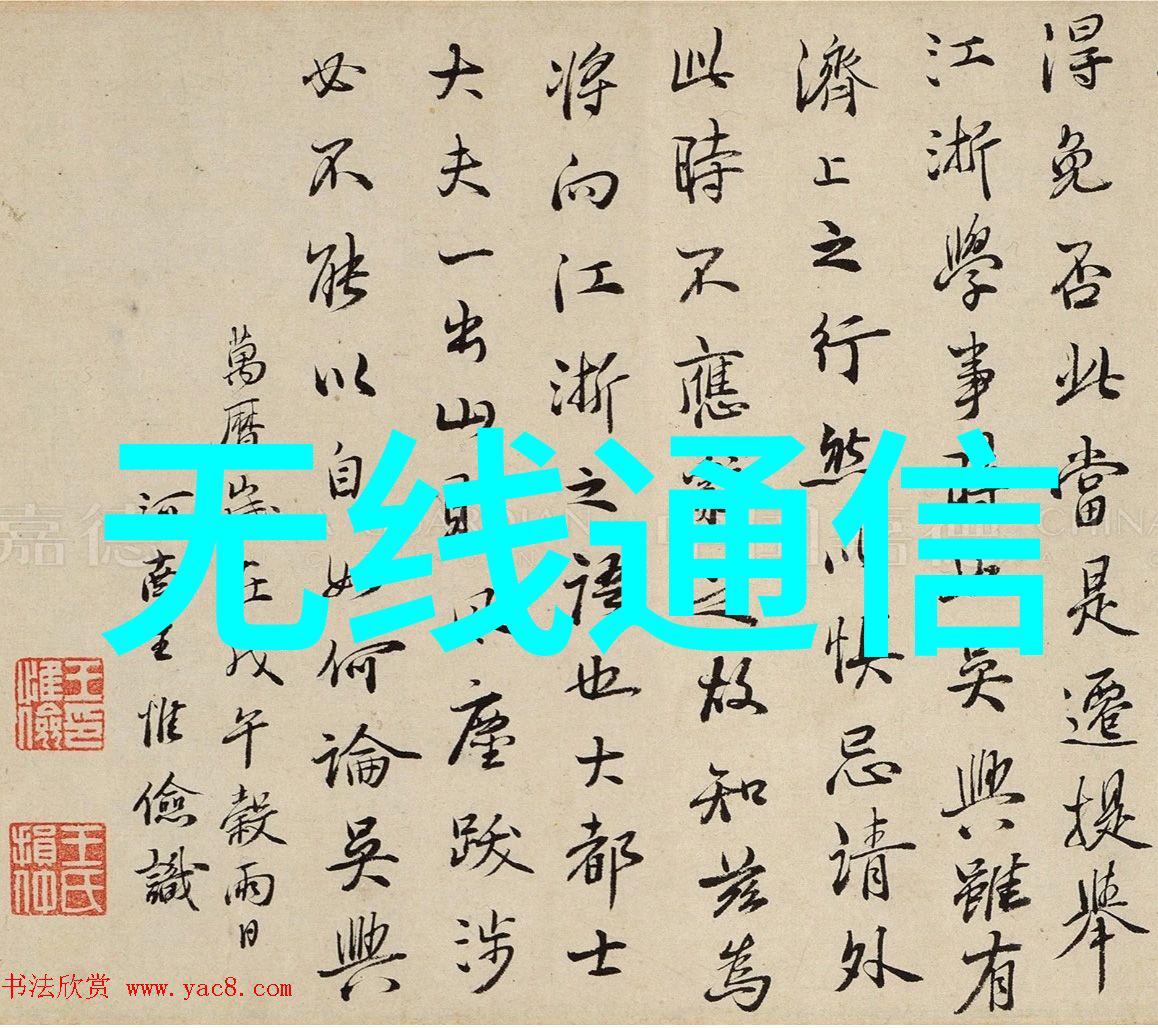 得免否此當是遷提舉
江浙學事時與吳興雖有
濟上之行然以快忌請外
此時不應
之故知茲為
將向江浙之語也大都士
大夫一出山
塵踐涉
必不能以自
如何論吳興
萬曆歲
午穀雨日
惟儉識
王惟儉印
王氏損仲
无线通信
书法欣赏 www.yac8.com